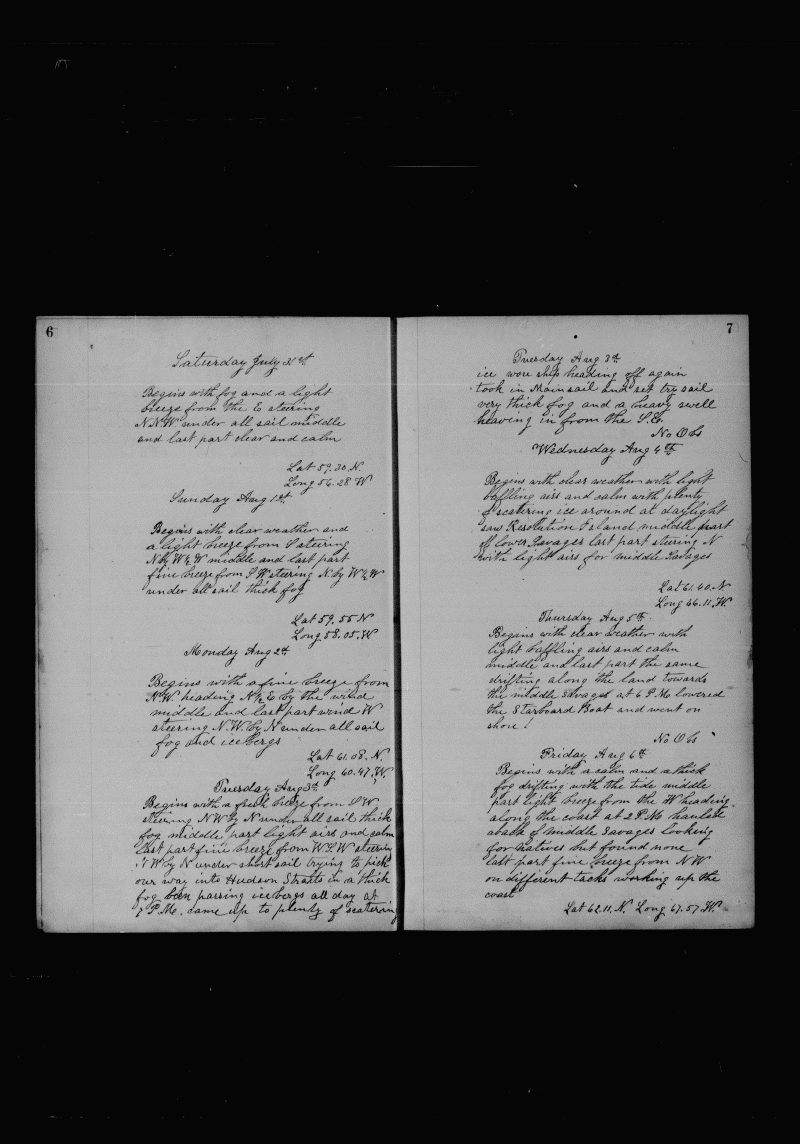 6
Saturday July 31st
Begins with fog and a light
breeze from the E steering
N.N.W under all sail middle
and last part clear and calm
Lat 59.30.N.
Long 56.28 W
Sunday Aug 1st
Begins with clear weather and
a light breeze from S steering
N by W½W middle and last part
fine breeze from S W steering N. by W½W
under all sail thick fog
Lat 59.55 N
Long 58.05.W
Monday Aug 2nd
Begins with a fine breeze from
N.W. heading N½E by the wind
middle and last part wind W
steering N.W. by N under all sail
fog and icebergs
Lat 61.08. N.
Long 60.47.W.
Tuesday Aug 3d
Begins with a fresh breeze from S W
steering N W by N under all sail thick
fog middle part light airs and calm
last part fine breeze from W.S.W steering
N W by N under short sail trying to pick
our way into Hudson Straits in a thick
fog been passing icebergs all day at
7 P.M. came up to plenty of scatering
7
Tuesday Aug 3d
ice wore ship heading off again
took in Mainsail and set try sail
very thick fog and a heavy swell
heaving in from the S.E.
No Obs
Wednesday Aug 4th
Begins with clear weather with light
baffling airs and calm with plenty
of scatering ice around at daylight
saw Resolution Island middle part
off lower Savages last part steering N
with light airs for middle Savages
Lat 61.40.N.
Long 66.11.W.
Thursday Aug 5th
Begins with clear weather with
light baffling airs and calm
middle and last part the same
drifting along the land towards
the middle Savages at 6 P.M. lowered
the Starboard Boat and went on
shore!
No Obs
Friday Aug 6th
Begins with a calm and a thick
fog drifting with the tide middle
part light breeze from the W heading
along the coast at 2 P.M. hauled
aback off middle Savages looking
for natives but found none
last part fine breeze from N W
on different tacks working up the
coast
Lat 62.11.N. Long 67.57.W.